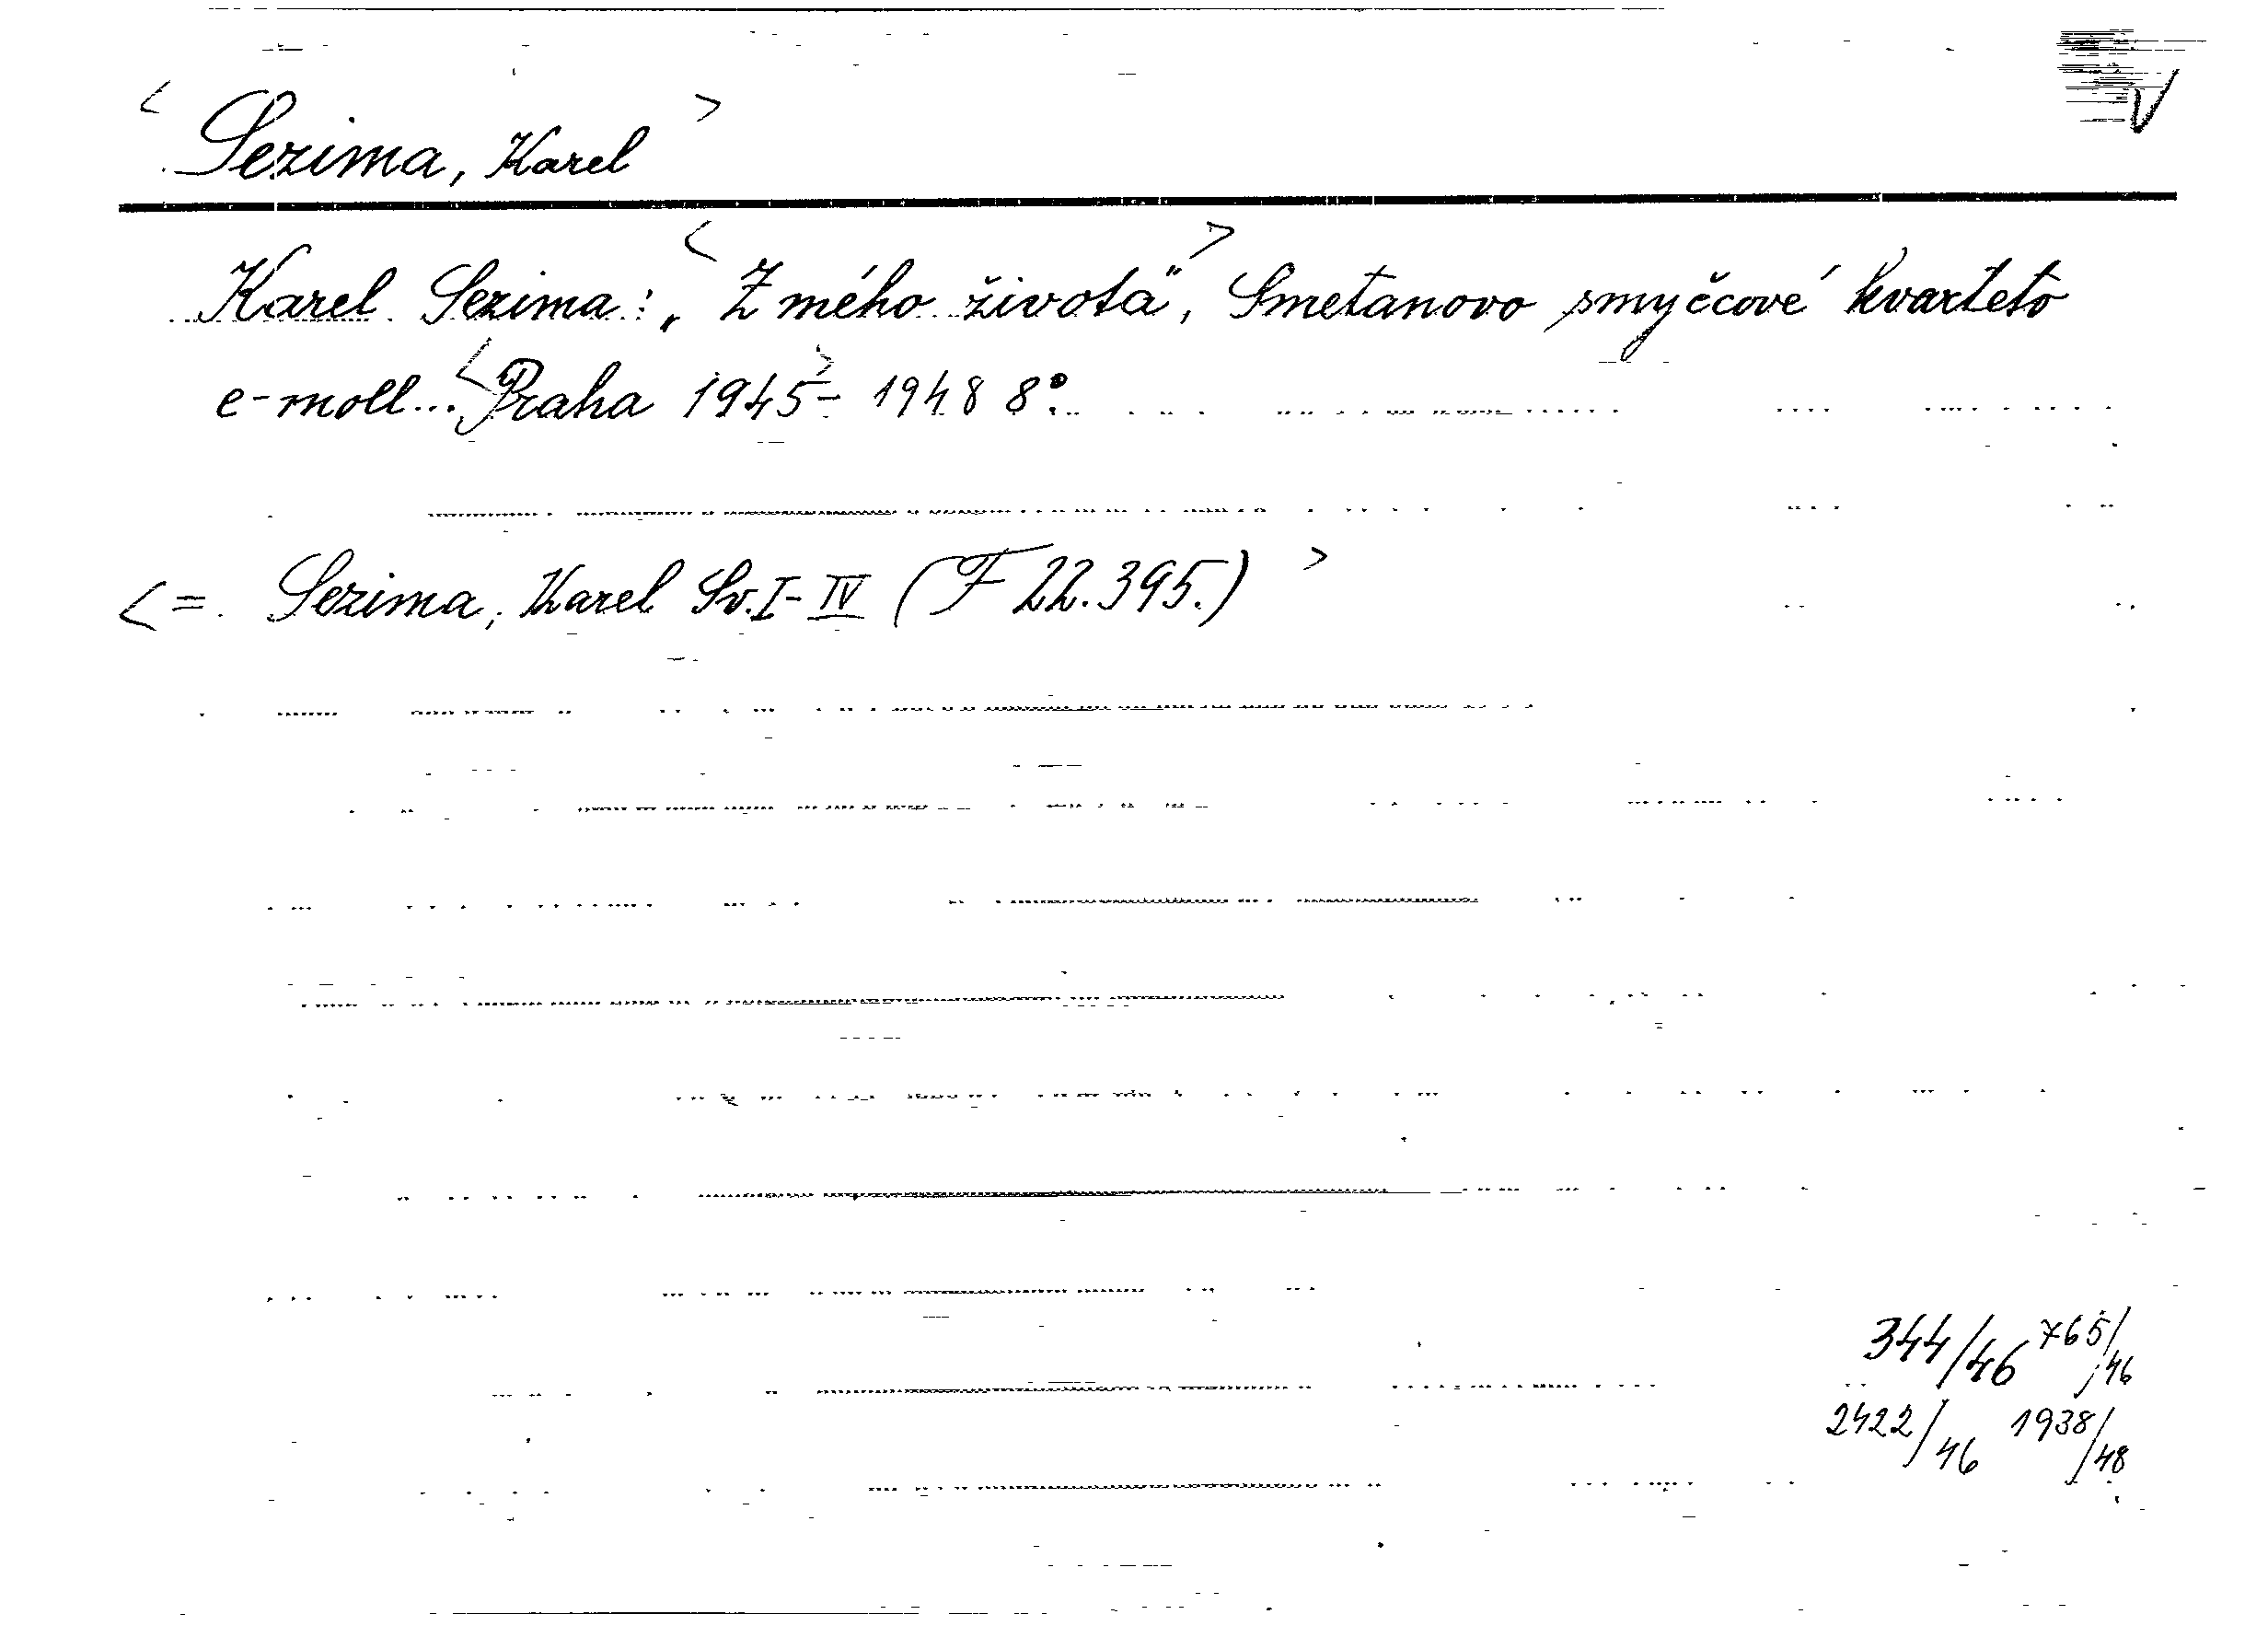 < Sezima, Karel > V
Karel Sezima: „<Z mého života">, Smetanovo smyčcové kvarteto
e-moll... <Praha 1945> - 1948 8°.
<= Sezima, Karel Sv. I-IV (F 22.395.) >
344/46 765/46
2422/46 1938/48